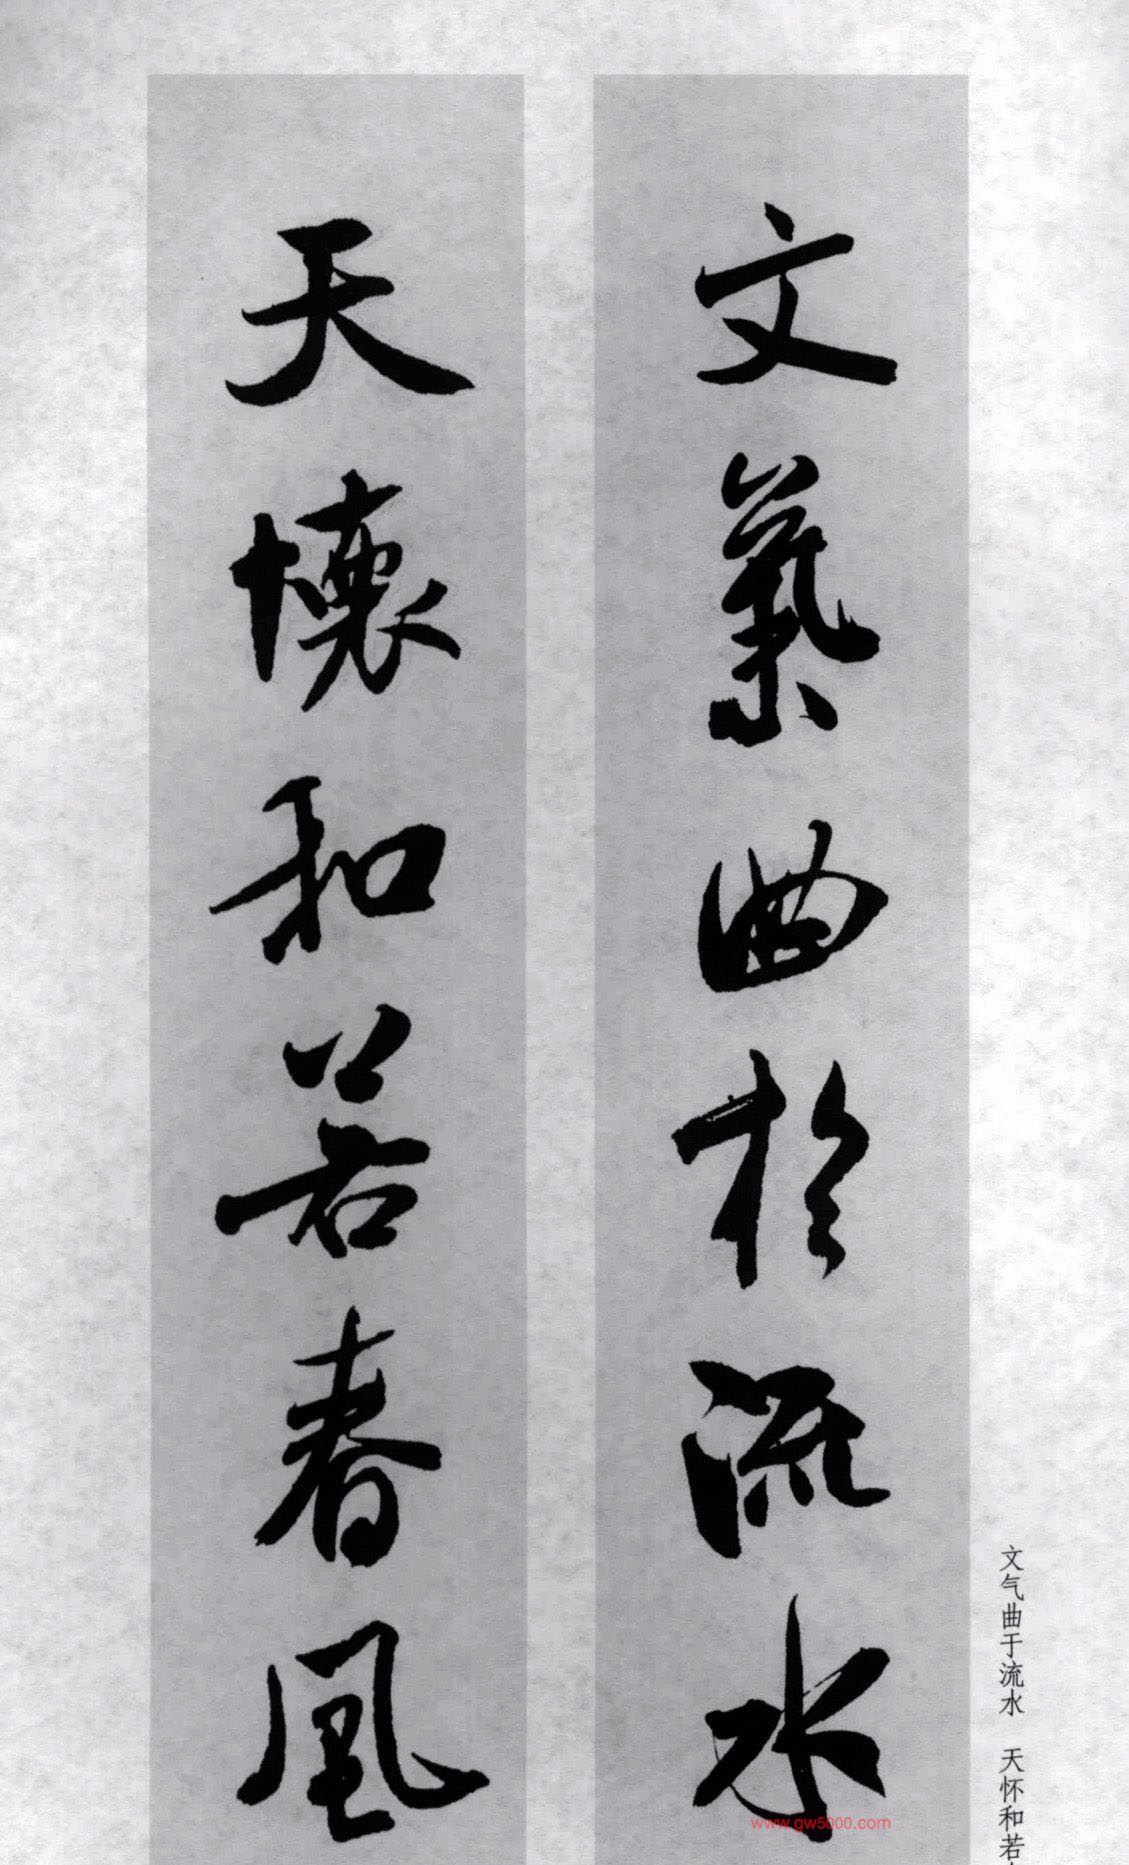 文氣曲於流水
天懷和若春風
文气曲于流水 天怀和若
www.gw5000.com